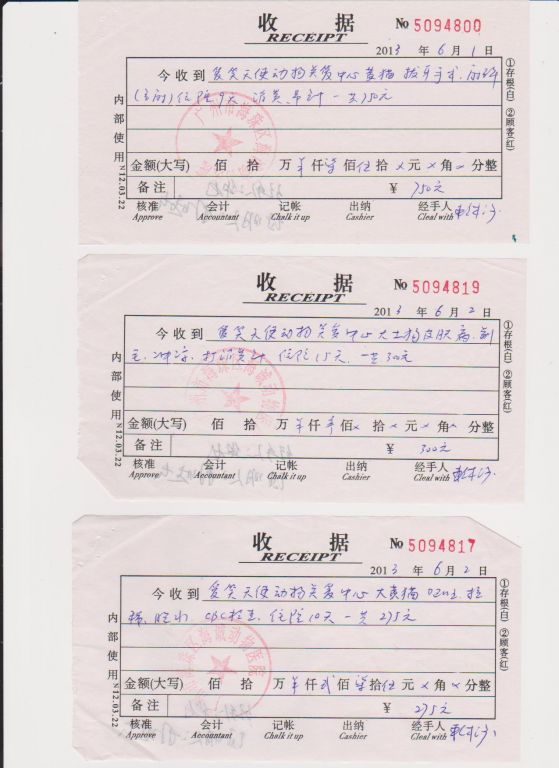 收 据
RECEIPT
No 5094800
2013 年 6 月 1 日
今收到 爱笑天使动物关爱中心 黄猫 拔牙手术.
住院9天 消炎.吊针 一共750元
金额(大写) 佰 拾 万 仟 柒 佰 伍 拾 元 角 分整
备注 ¥ 750元
核准 会计 记帐 出纳 经手人
Approve Accountant Chalk it up Cashier Cleal with
内部使用
N12.03.22
①存根(白) ②顾客(红)
收 据
RECEIPT
No 5094819
2013 年 6 月 2 日
今收到 爱笑天使动物关爱中心 大土狗皮肤病.剃
毛.冲凉.打消炎针 住院15天. 一共300元
金额(大写) 佰 拾 万 仟 佰 拾 元 角 分整
备注 ¥ 300元
核准 会计 记帐 出纳 经手人
Approve Accountant Chalk it up Cashier Cleal with
内部使用
N12.03.22
①存根(白) ②顾客(红)
收 据
RECEIPT
No 5094817
2013 年 6 月 2 日
今收到 爱笑天使动物关爱中心 大黄猫 拉
稀. CBC检查. 住院10天 一共275元
金额(大写) 佰 拾 万 仟 贰 佰 柒 拾 伍 元 角 分整
备注 ¥ 275元
核准 会计 记帐 出纳 经手人
Approve Accountant Chalk it up Cashier Cleal with
内部使用
N12.03.22
①存根(白) ②顾客(红)